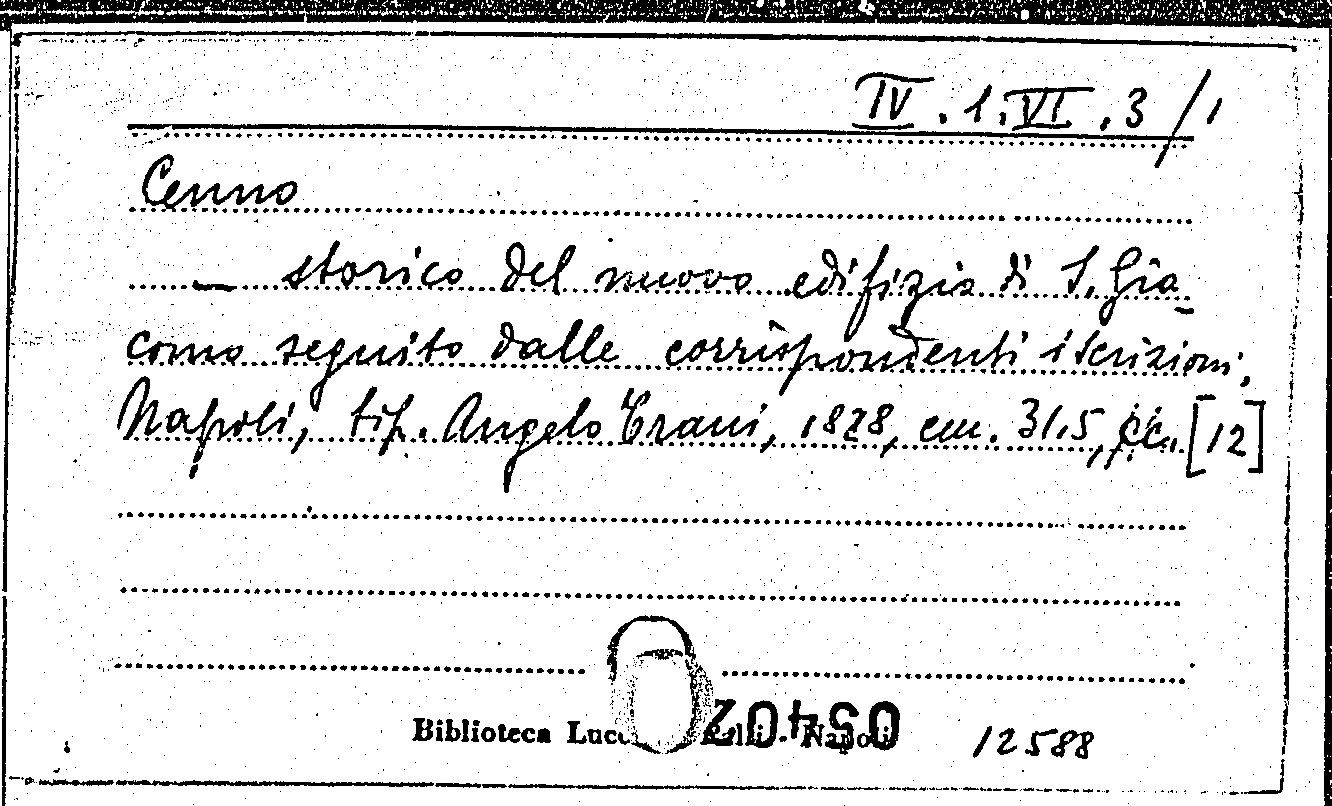 IV. 1. VI. 3/1
Cenno
— storico del nuovo edifizio di S. Gia-
como seguito dalle corrispondenti iscrizioni,
Napoli, tip. Angelo Trani, 1828, cm. 31,5, cc. [12]
Biblioteca Napoli
12588